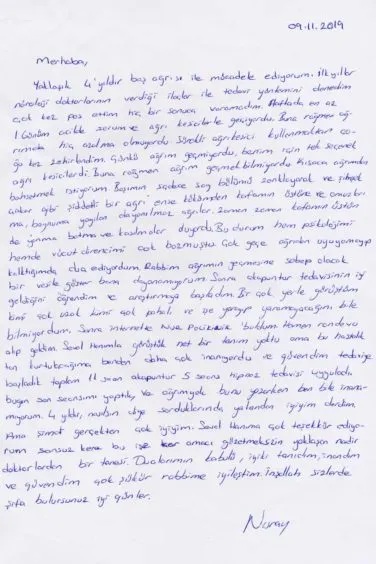 09.11.2019
Merhaba,
Yaklaşık 4 yıldır baş ağrısı ile mücadele ediyorum. İlk yıllar
nöroloji doktorlarının verdiği ilaçlar ile tedavi yöntemini denedim
çok kez pes ettim hiç bir sonuca varamadım. Haftada en az
1 günüm acilde serum ve ağrı kesicilerle geçiyordu. Buna rağmen ağ-
rımda hiç azalma olmuyordu sürekli ağrı kesici kullanmaktan
kez zehirlendim. Çünkü ağrım geçmiyordu, benim için tek seçenek
ağrı kesicilerdi. Buna rağmen ağrım geçmek bilmiyordu kısaca ağrımdan
bahsetmek istiyorum. Başımın sadece sağ bölümü zonkluyarak ve şimşek
çakar gibi şiddetli bir ağrı ense kökümden kafamın üstüne ve omuzları
ma, boynuma yayılan dayanılmaz ağrılar. Zaman zaman kafamın üstün
de yanma batma ve duyordu. Bu durum hem psikolojimi
hemde vücut direncimi çok bozmuştu. Çok gece ağrıdan uyuyamayıp
kalktığımda dua ediyordum. Rabbim ağrımın geçmesine sebep olacak
bir vesile göster bana dayanamıyorum. Sonra akapuntur tedavisinin iyi
geldiğini öğrendim ve araştırmaya başladım. Bir çok yerle görüştüm
kimi çok uzak kimi çok pahalı ve işe yarayıp yaramayacağını bile
bilmiyordum. Sonra internette buldum. Hemen randevu
alıp geldim. Sevel Hanımla görüştük net bir tanım yoktu ama bu hastalık
tan kurtulacağıma benden daha çok inanıyordu ve güvendim tedaviye
başladık toplam 11 seans akapuntur 5 seans tedavisi uyguladı.
bugün son seansımı yaptık ve ağrım yok bunu yazarken ben bile inana-
mıyorum. 4 yıldır, nasılsın diye sorduklarında yalandan iyiyim derdim.
Ama şimdi gerçekten çok iyiyim. Sevel Hanıma çok teşekkür ediyo-
rum sonsuz kere bu işe amacı gözetmeksizin yaklaşan nadir
doktorlardan bir tanesi. Dualarımın kabulü, iyiki tanıdım, inandım
ve güvendim çok şükür rabbime iyileştim. İnşallah sizlerde
şifa bulursunuz iyi günler.
Nuray